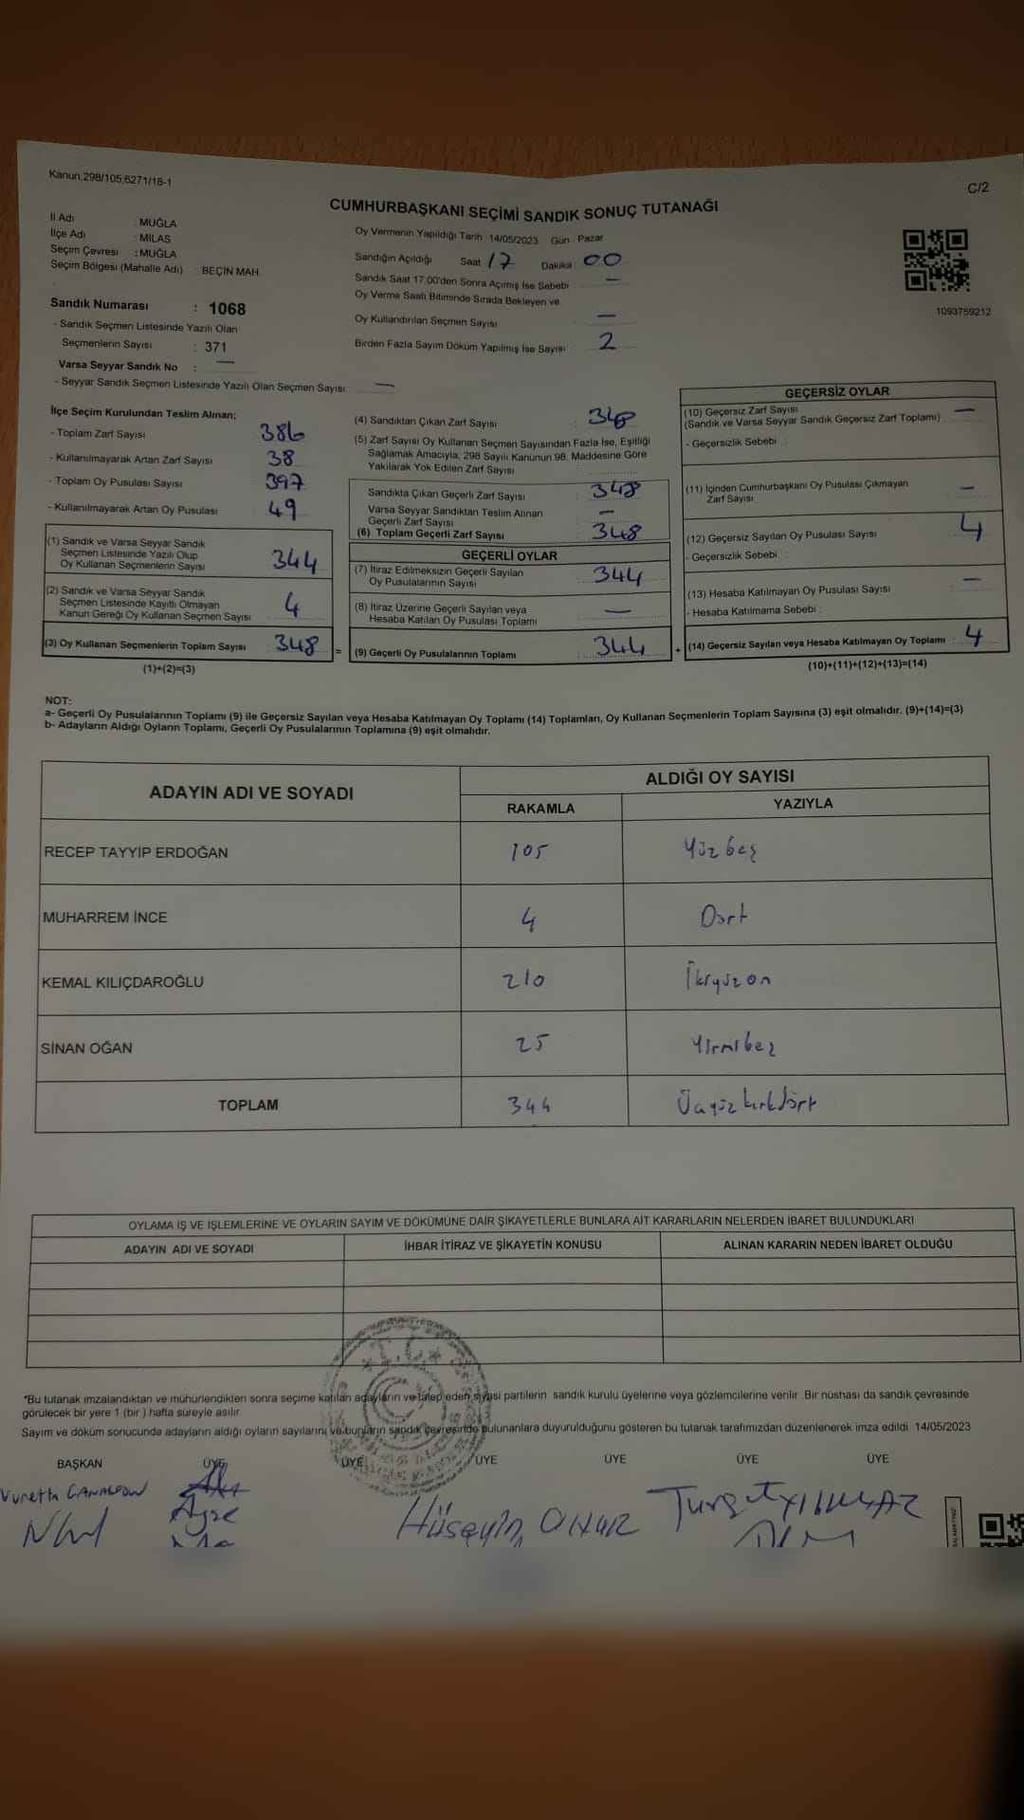 Kanun:298/105;6271/18-1
C/2
CUMHURBAŞKANI SEÇİMİ SANDIK SONUÇ TUTANAĞI
İl Adı : MUĞLA
İlçe Adı : MİLAS
Seçim Çevresi : MUĞLA
Seçim Bölgesi (Mahalle Adı) BEÇİN MAH.
Sandık Numarası : 1068
- Sandık Seçmen Listesinde Yazılı Olan
Seçmenlerin Sayısı : 371
Varsa Seyyar Sandık No : —
- Seyyar Sandık Seçmen Listesinde Yazılı Olan Seçmen Sayısı: —
Oy Vermenin Yapıldığı Tarih 14/05/2023 Gün : Pazar
Sandığın Açıldığı Saat 17 Dakika 00
Sandık Saat 17:00'den Sonra Açılmış İse Sebebi —
Oy Verme Saati Bitiminde Sırada Bekleyen ve
Oy Kullandırılan Seçmen Sayısı —
Birden Fazla Sayım Döküm Yapılmış İse Sayısı 2
1093759212
İlçe Seçim Kurulundan Teslim Alınan;
- Toplam Zarf Sayısı 386
- Kullanılmayarak Artan Zarf Sayısı 38
- Toplam Oy Pusulası Sayısı 397
- Kullanılmayarak Artan Oy Pusulası 49
(1) Sandık ve Varsa Seyyar Sandık
Seçmen Listesinde Yazılı Olup
Oy Kullanan Seçmenlerin Sayısı 344
(2) Sandık ve Varsa Seyyar Sandık
Seçmen Listesinde Kayıtlı Olmayan
Kanun Gereği Oy Kullanan Seçmen Sayısı 4
(3) Oy Kullanan Seçmenlerin Toplam Sayısı 348 =
(1)+(2)=(3)
(4) Sandıktan Çıkan Zarf Sayısı : 348
(5) Zarf Sayısı Oy Kullanan Seçmen Sayısından Fazla İse, Eşitliği
Sağlamak Amacıyla, 298 Sayılı Kanunun 98. Maddesine Göre
Yakılarak Yok Edilen Zarf Sayısı
Sandıkta Çıkan Geçerli Zarf Sayısı 348
Varsa Seyyar Sandıktan Teslim Alınan
Geçerli Zarf Sayısı —
(6) Toplam Geçerli Zarf Sayısı 348
GEÇERLİ OYLAR
(7) İtiraz Edilmeksizin Geçerli Sayılan
Oy Pusulalarının Sayısı 344
(8) İtiraz Üzerine Geçerli Sayılan veya
Hesaba Katılan Oy Pusulası Toplamı —
(9) Geçerli Oy Pusulalarının Toplamı 344 +
GEÇERSİZ OYLAR
(10) Geçersiz Zarf Sayısı
(Sandık ve Varsa Seyyar Sandık Geçersiz Zarf Toplamı) —
- Geçersizlik Sebebi :
(11) İçinden Cumhurbaşkanı Oy Pusulası Çıkmayan
Zarf Sayısı —
(12) Geçersiz Sayılan Oy Pusulası Sayısı 4
- Geçersizlik Sebebi :
(13) Hesaba Katılmayan Oy Pusulası Sayısı —
- Hesaba Katılmama Sebebi :
(14) Geçersiz Sayılan veya Hesaba Katılmayan Oy Toplamı : 4
(10)+(11)+(12)+(13)=(14)
NOT:
a- Geçerli Oy Pusulalarının Toplamı (9) ile Geçersiz Sayılan veya Hesaba Katılmayan Oy Toplamı (14) Toplamları, Oy Kullanan Seçmenlerin Toplam Sayısına (3) eşit olmalıdır. (9)+(14)=(3)
b- Adayların Aldığı Oyların Toplamı, Geçerli Oy Pusulalarının Toplamına (9) eşit olmalıdır.
ADAYIN ADI VE SOYADI
ALDIĞI OY SAYISI
RAKAMLA YAZIYLA
RECEP TAYYİP ERDOĞAN 105 Yüzbeş
MUHARREM İNCE 4 Dört
KEMAL KILIÇDAROĞLU 210 İkiyüzon
SİNAN OĞAN 25 Yirmibeş
TOPLAM 344 Üçyüzkırkdört
OYLAMA İŞ VE İŞLEMLERİNE VE OYLARIN SAYIM VE DÖKÜMÜNE DAİR ŞİKAYETLERLE BUNLARA AİT KARARLARIN NELERDEN İBARET BULUNDUKLARI
ADAYIN ADI VE SOYADI İHBAR İTİRAZ VE ŞİKAYETİN KONUSU ALINAN KARARIN NEDEN İBARET OLDUĞU
T.C.
*Bu tutanak imzalandıktan ve mühürlendikten sonra seçime katılan adayların ve talep eden siyasi partilerin sandık kurulu üyelerine veya gözlemcilerine verilir. Bir nüshası da sandık çevresinde
görülecek bir yere 1 (bir) hafta süreyle asılır.
Sayım ve döküm sonucunda adayların aldığı oyların sayılarını ve bunların sandık çevresinde bulunanlara duyurulduğunu gösteren bu tutanak tarafımızdan düzenlenerek imza edildi. 14/05/2023
BAŞKAN ÜYE ÜYE ÜYE ÜYE ÜYE ÜYE
Ayşe
Hüseyin ONUR
Turgut YILMAZ